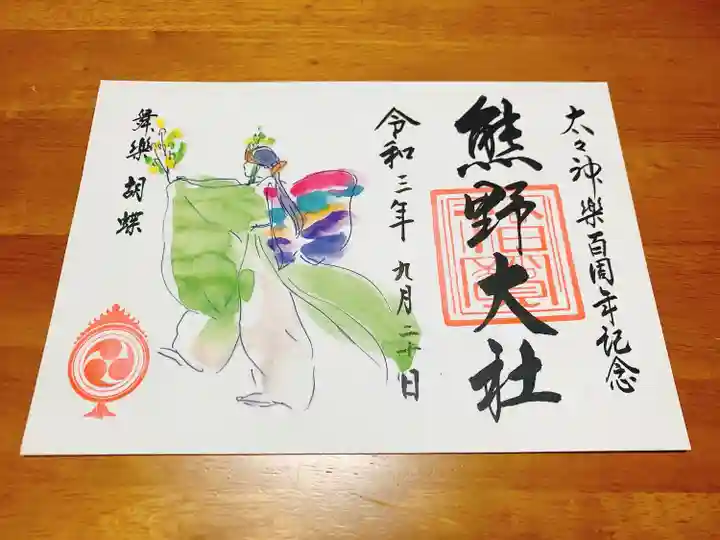 太々神樂百周年記念
熊野大社
令和三年九月二十日
舞樂 胡蝶